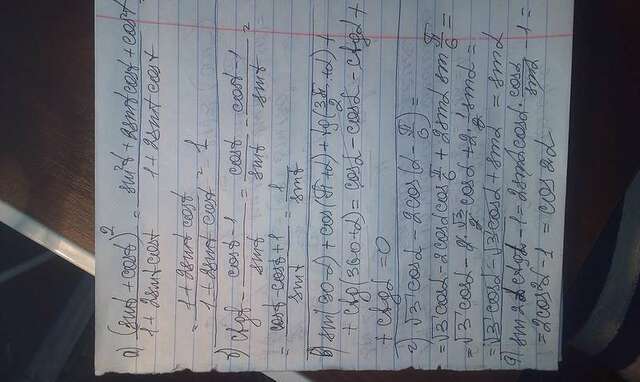 а) (sint + cost)² / 1 + 2sintcost = sin²t + 2sintcost + cos²t / 1 + 2sintcost =
= 1 + 2sintcost / 1 + 2sintcost = 1
б) ctgt - cost - 1 / sint = cost / sint - cost - 1 / sint =
= cost - cost + 1 / sint = 1 / sint
в) sin(90-α) + cos(π+α) + tg(3π/2 + α) +
+ ctg(360-α) = cosα - cosα - ctgα +
+ ctgα = 0
г) √3 cosα - 2cos(α - π/6) =
= √3 cosα - 2cosα cos π/6 + 2sinα sin π/6 =
= √3 cosα - 2·√3/2 cosα + 2·1/2 sinα =
= √3 cosα - √3 cosα + sinα = sinα
д) sin2α ctgα - 1 = 2sinα cosα · cosα / sinα - 1 =
= 2cos²α - 1 = cos2α